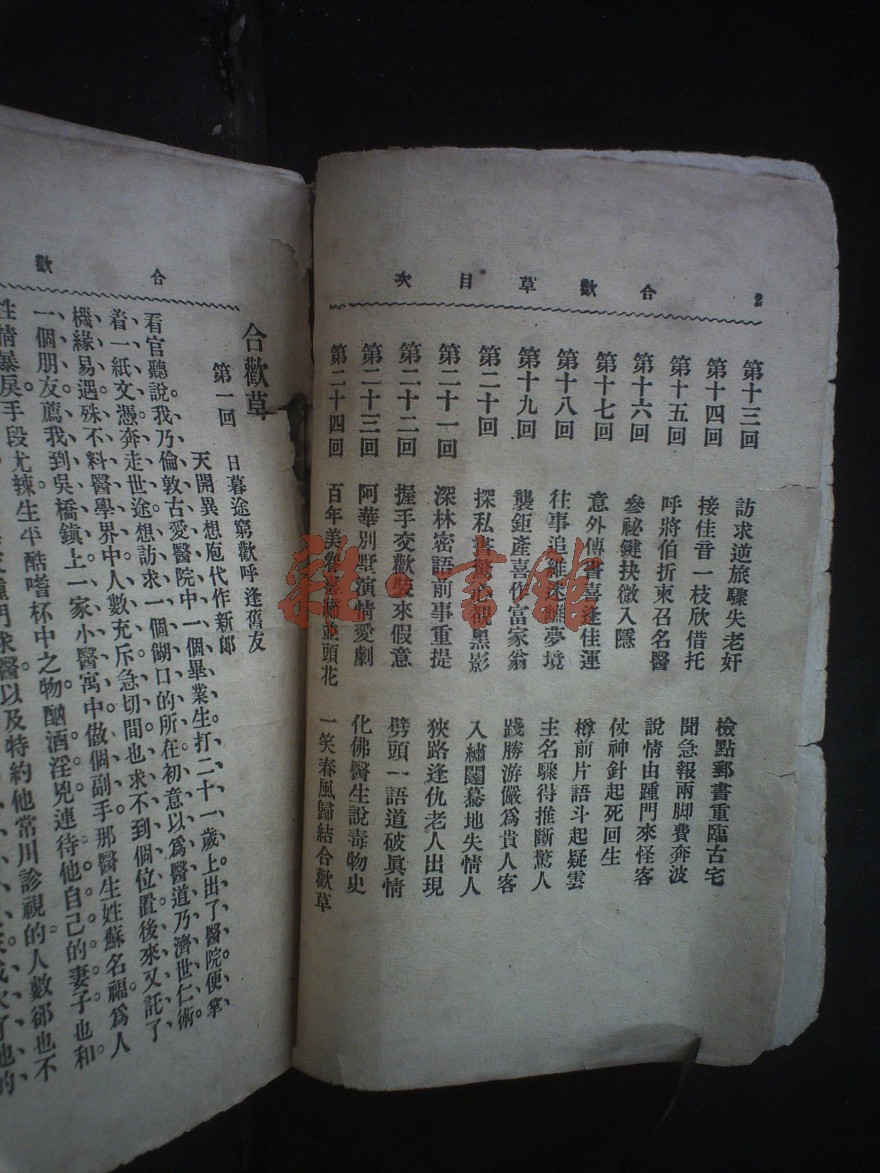 2 合歡草目次
第十三回 訪求逆旅驟失老奸 檢點郵書重臨古宅
第十四回 接佳音一枝欣借托 聞急報兩脚費奔波
第十五回 呼將伯折柬召名醫 說情由踵門來怪客
第十六回 參祕鍵抉微入隱 仗神針起死回生
第十七回 意外傳書喜逢佳運 樽前片語斗起疑雲
第十八回 往事追維迷離夢境 主名驟得推斷驚人
第十九回 襲鉅產喜作富家翁 踐勝游儼爲貴人客
第二十回 探私書驚心覩黑影 入繡闥驀地失情人
第二十一回 深林密語前事重提 狹路逢仇老人出現
第二十二回 握手交歡裝來假意 劈頭一語道破眞情
第二十三回 阿華別墅演情愛劇 化佛醫生說毒物史
第二十四回 百年美眷 並頭花 一笑春風歸結合歡草
合歡
合歡草
第一回 日暮途窮歡呼逢舊友
天開異想庖代作新郞
看官聽說我乃倫敦古愛醫院中一個畢業生打二十一歲上出了醫院便拿
着一紙文憑奔走世途想訪求一個餬口的所在初意以爲醫道乃濟世仁術。
機緣易遇殊不料醫學界中人數充斥急切間也求不到個位置後來又託了
一個朋友薦我到吳橋鎭上一家小醫寓中做個副手那醫生姓蘇名福爲人
性情暴戾手段尤辣生平酷嗜杯中之物酗酒淫兇連待他自己的妻子也和
門求醫以及特約他常川診視的人數郤也不
雜·書館